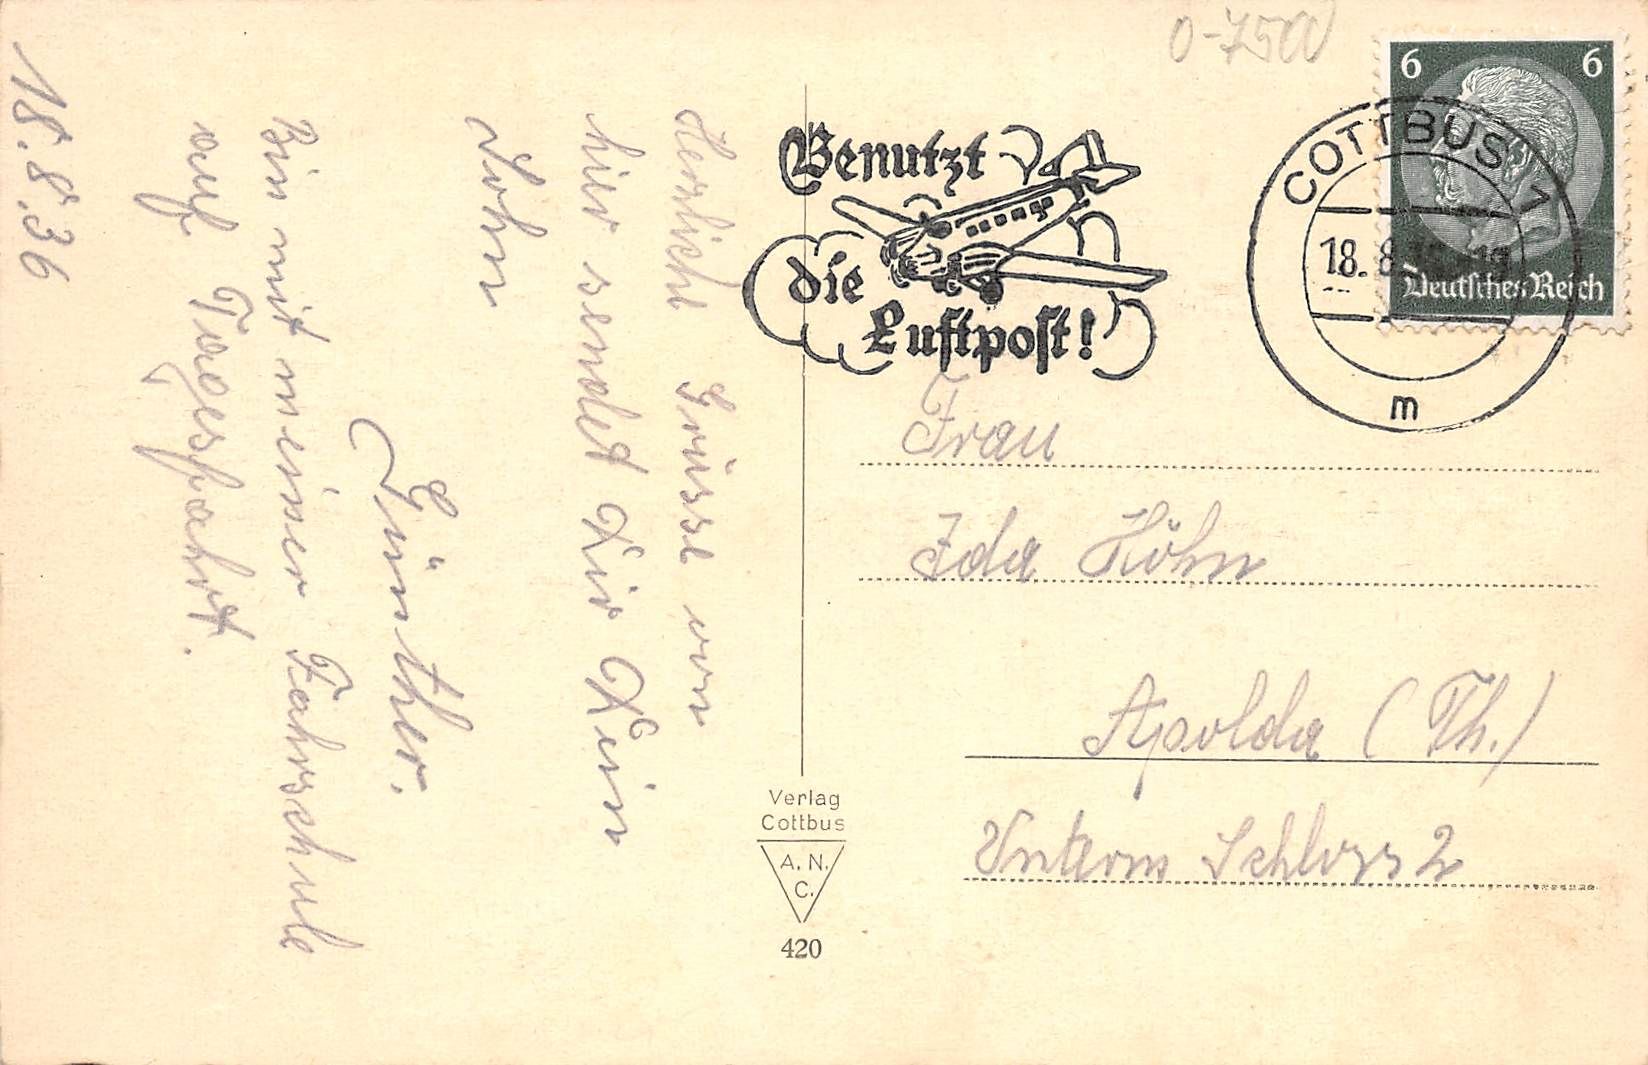 18.8.36
Herzliche Grüsse von
hier sendet Dir Dein
Sohn
Günther.
Bin mit meiner Fahrschule
auf Tagesfahrt.
0-7500
6 6
Deutsches Reich
COTTBUS 1
18.8.
m
Benutzt
die
Luftpost!
Frau
Ida Höhn
Apolda (Th.)
Unterm Schloss 2
Verlag
Cottbus
A. N.
C.
420